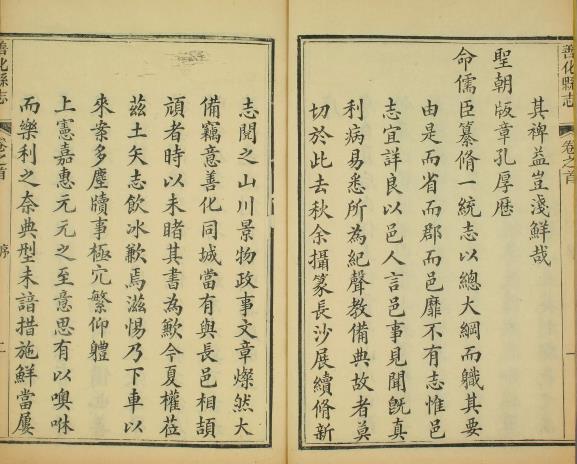 善化縣志
卷之首
一
其裨益豈淺鮮哉
聖朝版章孔厚歷
命儒臣纂脩一統志以總大綱而軄其要
由是而省而郡而邑靡不有志惟邑
志宜詳良以邑人言邑事見聞既真
利病易悉所為紀聲教備典故者莫
切於此去秋余攝篆長沙展續脩新
志閱之山川景物政事文章燦然大
備竊意善化同城當有與長邑相頡
頑者時以未睹其書為歉今夏權莅
茲土矢志飲冰歉焉滋惕乃下車以
來案多塵牘事極宂繁仰軆
上憲嘉惠元元之至意思有以噢咻
而樂利之奈典型未諳措施鮮當屢
善化縣志
卷之首
序
二